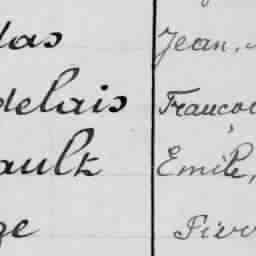 das Jean,
delais Françoi
ault Emile,
ge Pierr